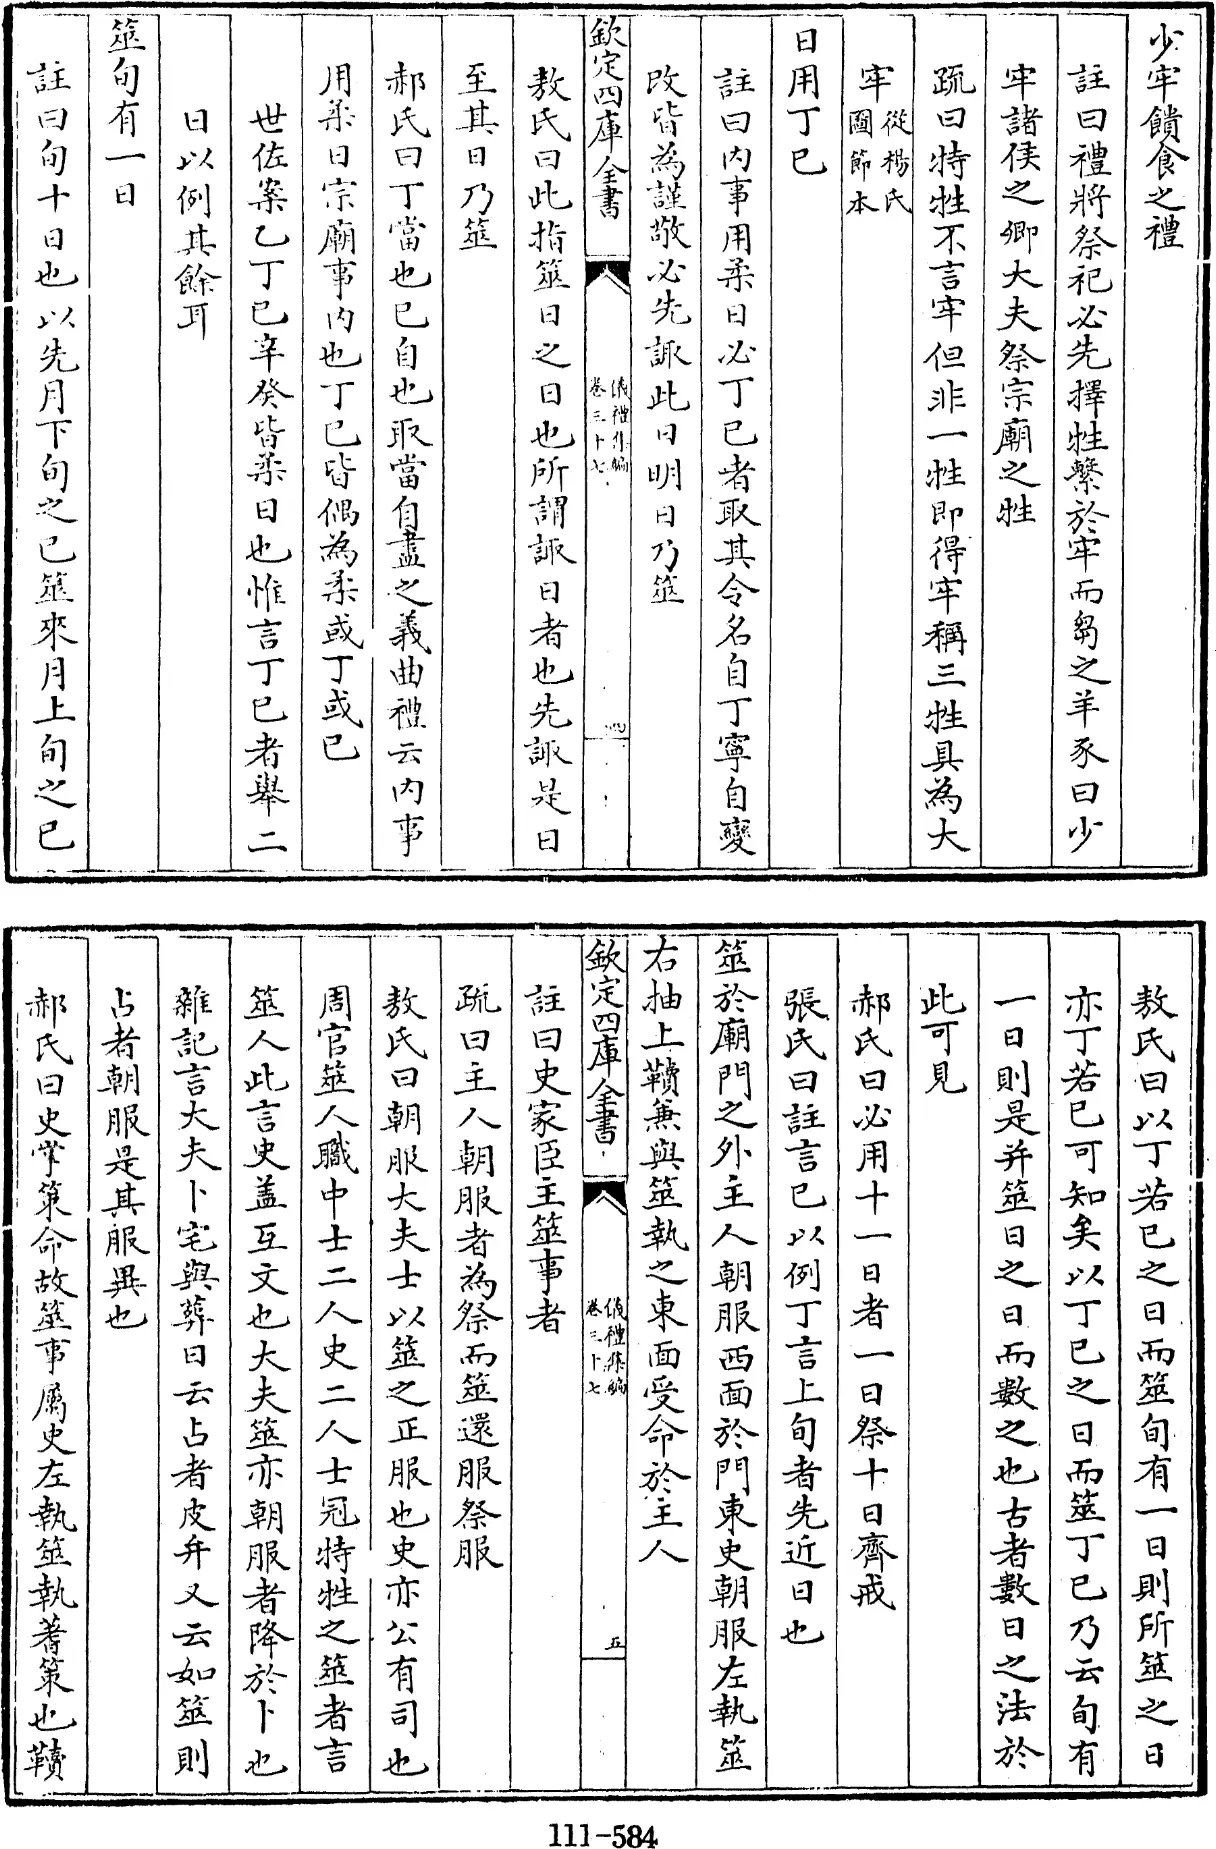 少牢饋食之禮
註曰禮將祭祀必先擇牲繫於牢而芻之羊豕曰少
牢諸侯之卿大夫祭宗廟之牲
疏曰特牲不言牢但非一牲即得牢稱三牲具為大
牢從楊氏圖節本
日用丁已
註曰內事用柔日必丁已者取其令名自丁寧自變
改皆為謹敬必先諏此日明日乃筮
欽定四庫全書
儀禮集編
卷三十七
四
敖氏曰此指筮日之日也所謂諏日者也先諏是日
至其日乃筮
郝氏曰丁當也已自也取當自盡之義曲禮云內事
用柔日宗廟事內也丁已皆偶為柔或丁或已
世佐案乙丁已辛癸皆柔日也惟言丁已者舉二
日以例其餘耳
筮旬有一日
註曰旬十日也以先月下旬之已筮來月上旬之已
敖氏曰以丁若已之日而筮旬有一日則所筮之日
亦丁若已可知矣以丁已之日而筮丁已乃云旬有
一日則是并筮日之日而數之也古者數日之法於
此可見
郝氏曰必用十一日者一日祭十日齊戒
張氏曰註言已以例丁言上旬者先近日也
筮於廟門之外主人朝服西面於門東史朝服左執筮
右抽上韇兼與筮執之東面受命於主人
欽定四庫全書
儀禮集編
卷三十七
五
註曰史家臣主筮事者
疏曰主人朝服者為祭而筮還服祭服
敖氏曰朝服大夫士以筮之正服也史亦公有司也
周官筮人職中士二人史二人士冠特牲之筮者言
筮人此言史蓋互文也大夫筮亦朝服者降於卜也
雜記言大夫卜宅與葬日云占者皮弁又云如筮則
占者朝服是其服異也
郝氏曰史掌策命故筮事屬史左執筮執蓍策也韇
111-584